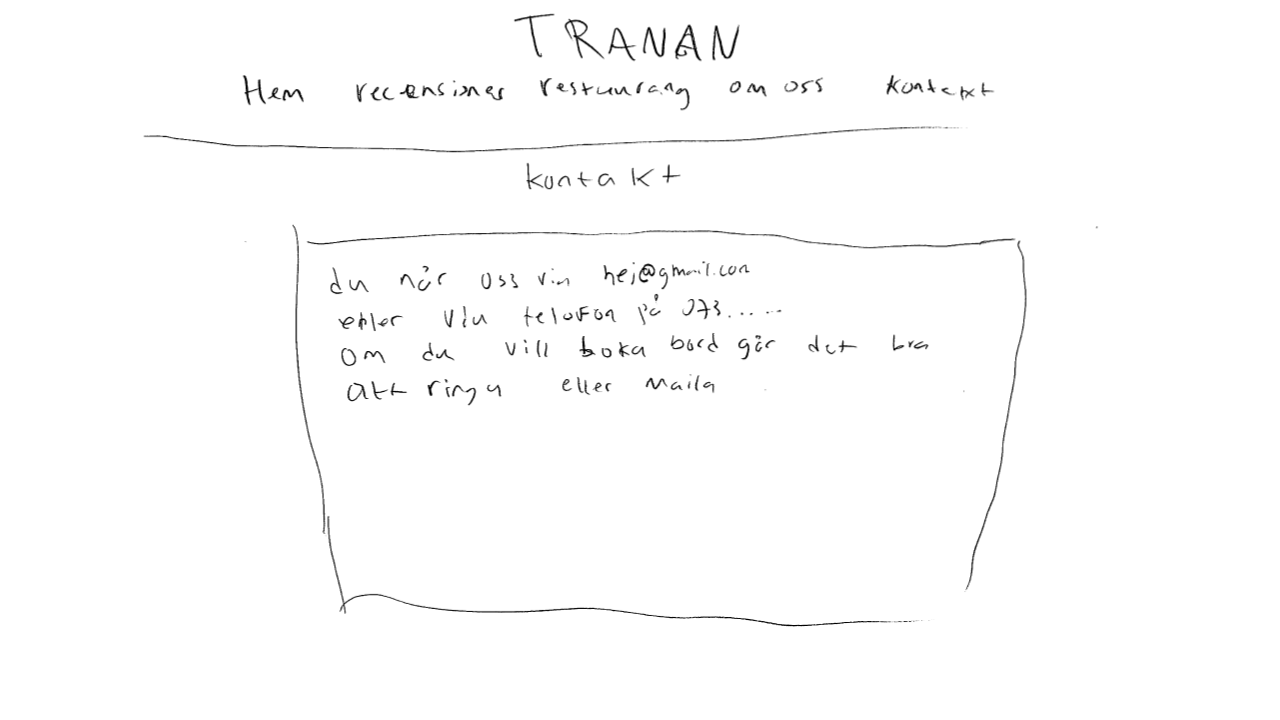 TRANAN
Hem recensioner restaurang om oss kontakt
kontakt
du når oss via hej@gmail.com
eller via telefon på 073......
om du vill boka bord går det bra
att ringa eller maila